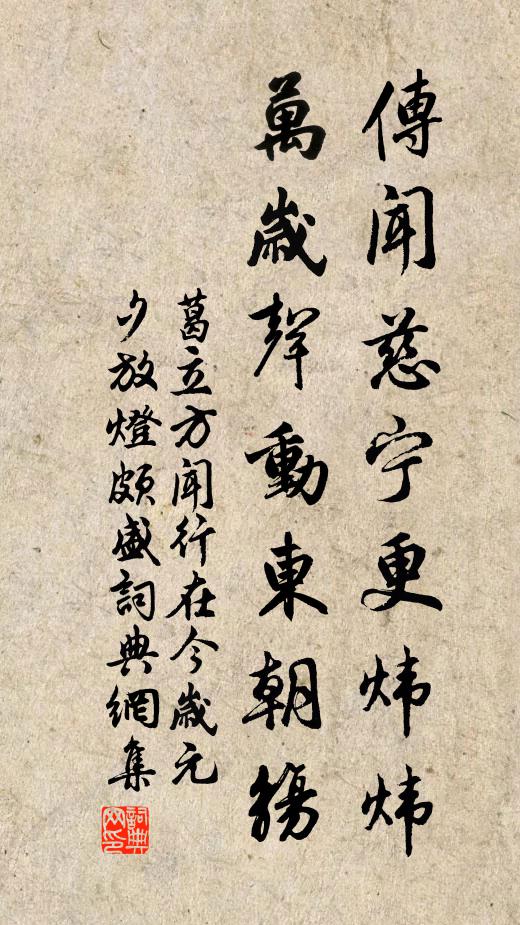 傳聞慈宁更炜炜
萬歲聲動東朝觴
葛立方聞行在今歲元
夕放燈頗盛詞典網集
詞典
网印